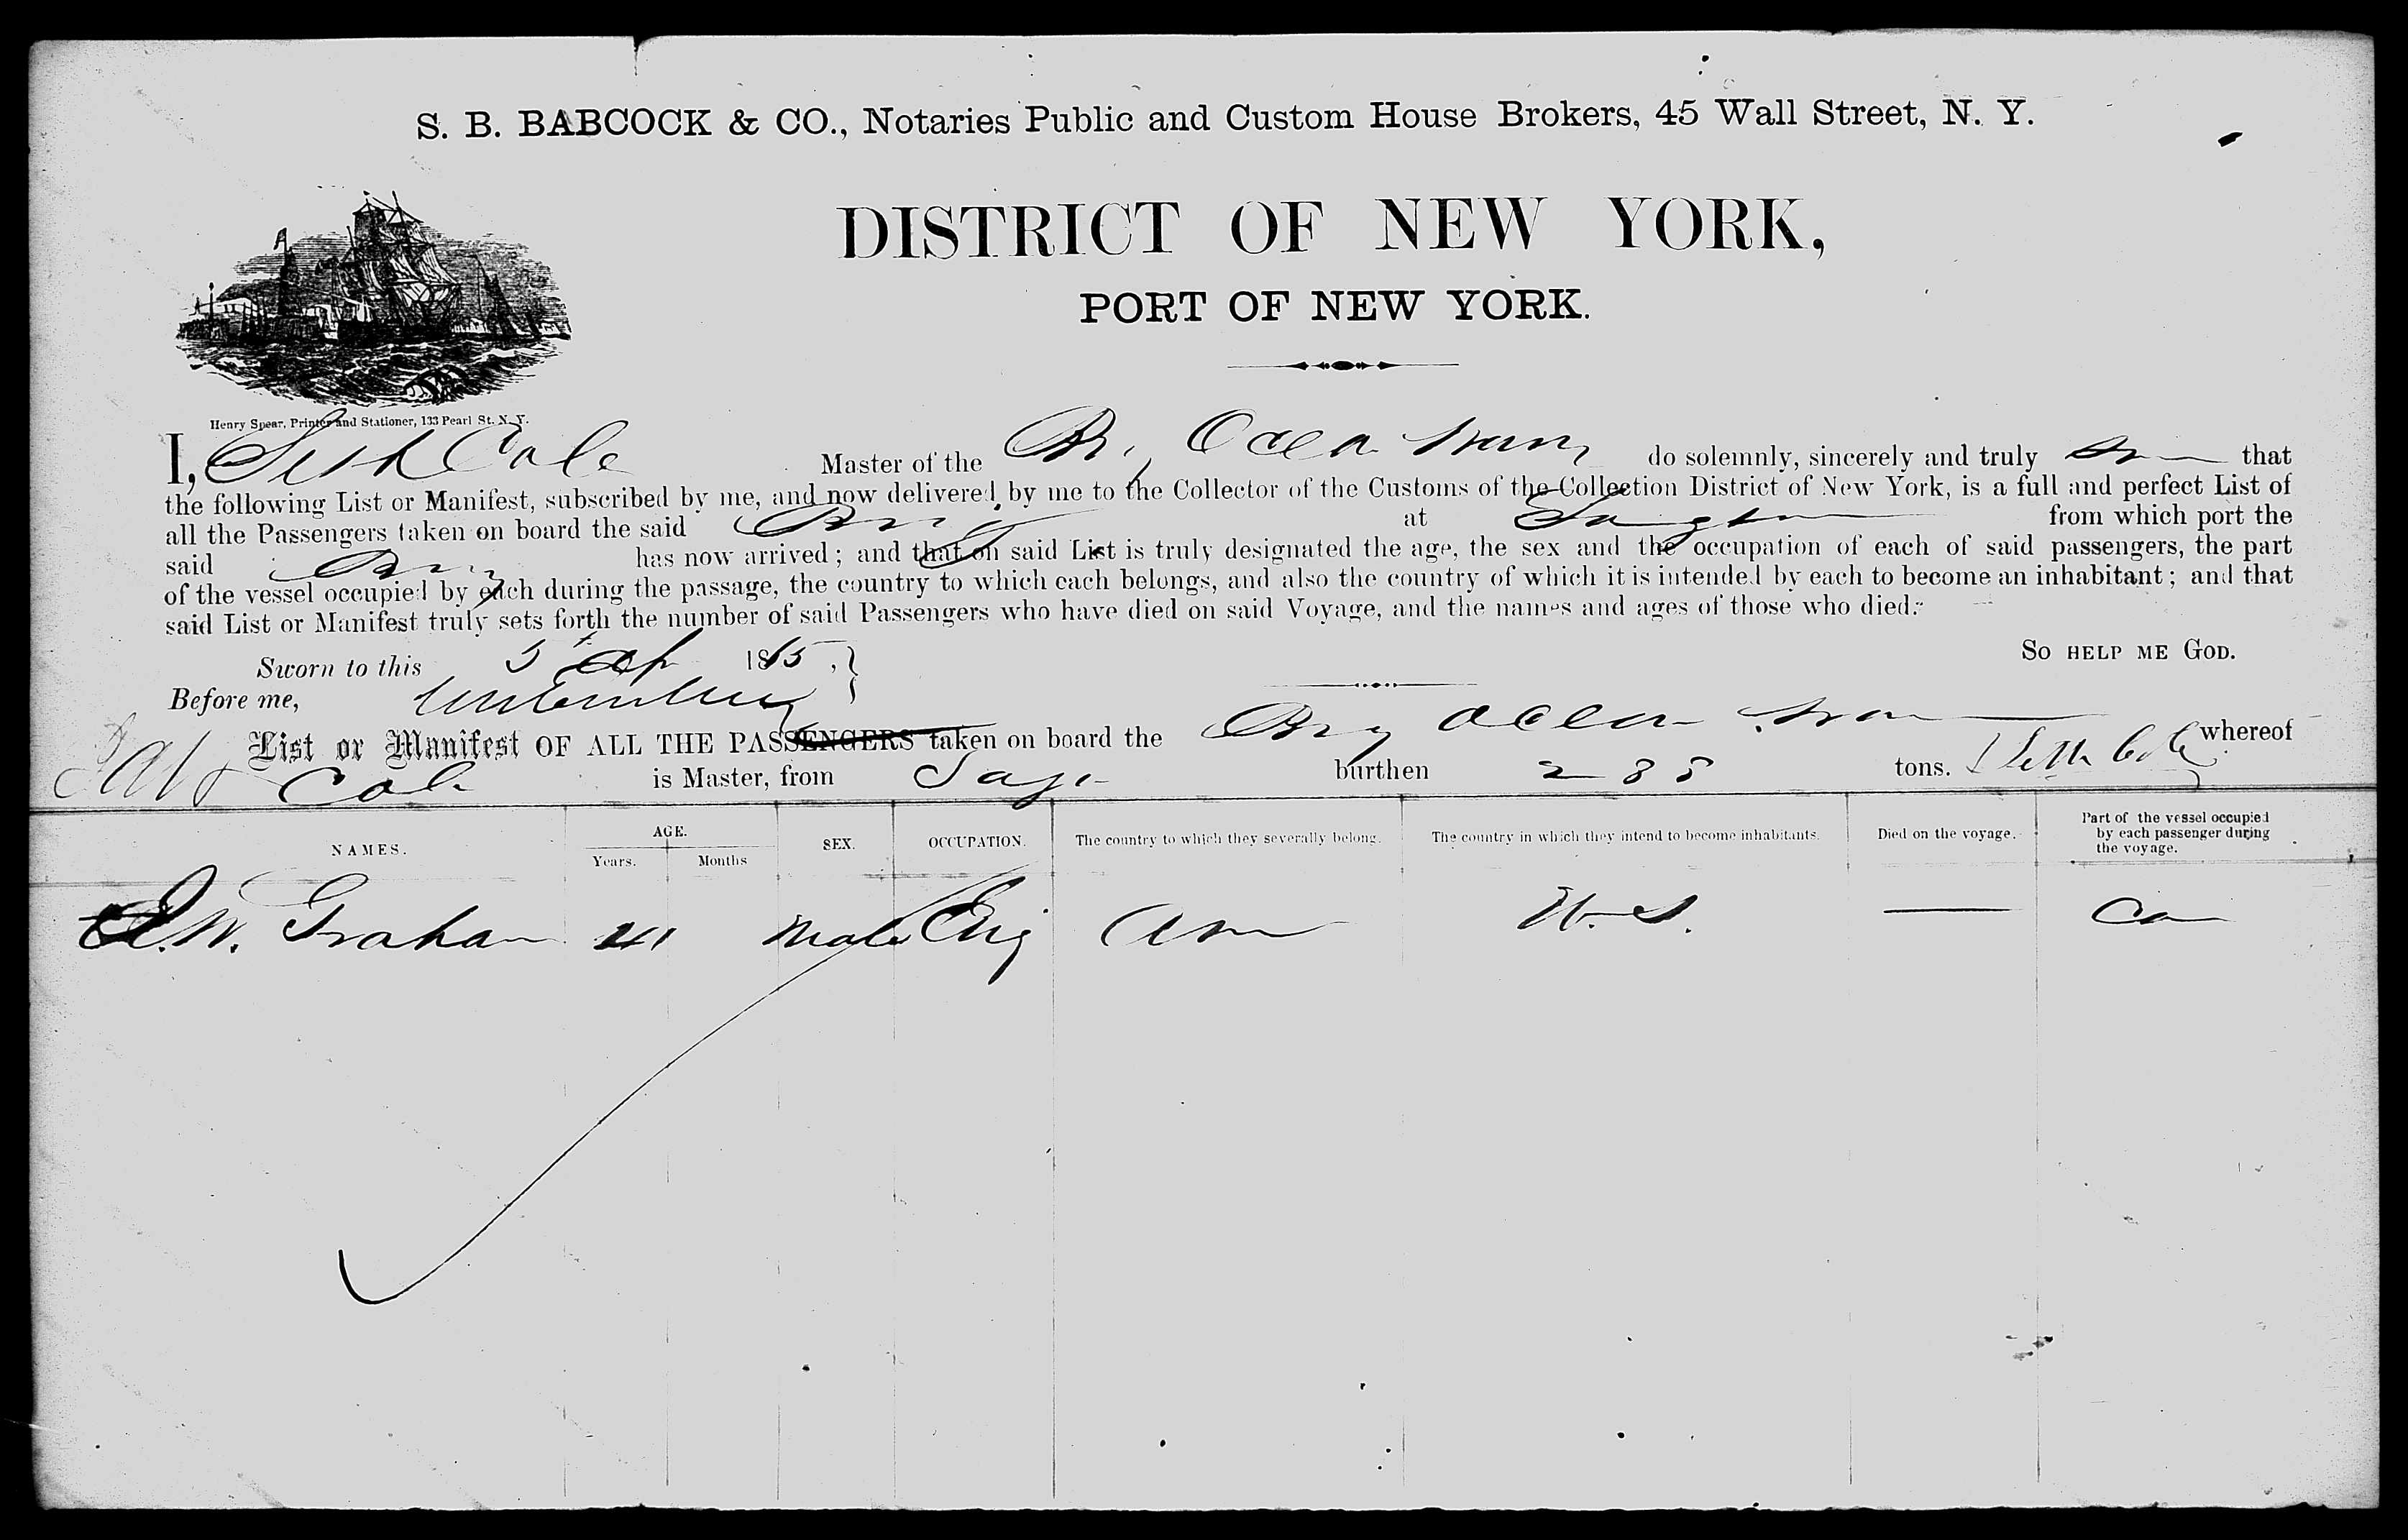 S. B. BABCOCK & CO., Notaries Public and Custom House Brokers, 45 Wall Street, N. Y.
DISTRICT OF NEW YORK,
PORT OF NEW YORK.
Henry Spear, Printer and Stationer, 133 Pearl St. N. Y.
I, Seth Cole Master of the Br, Ocean do solemnly, sincerely and truly that
the following List or Manifest, subscribed by me, and now delivered by me to the Collector of the Customs of the Collection District of New York, is a full and perfect List of
all the Passengers taken on board the said Brig at from which port the
said Brig has now arrived; and that on said List is truly designated the age, the sex and the occupation of each of said passengers, the part
of the vessel occupied by each during the passage, the country to which each belongs, and also the country of which it is intended by each to become an inhabitant; and that
said List or Manifest truly sets forth the number of said Passengers who have died on said Voyage, and the names and ages of those who died.
So HELP ME GOD.
Sworn to this 5 Ap 1865,
Before me,
List or Manifest OF ALL THE PASSENGERS taken on board the Brig Ocean whereof
Cole is Master, from burthen 2 8 8 tons. Seth Cole
NAMES. AGE. Years. Months SEX. OCCUPATION. The country to which they severally belong. The country in which they intend to become inhabitants. Died on the voyage. Part of the vessel occupied by each passenger during the voyage.
W. Graham 41 Male Eng Am U.S. — Ca